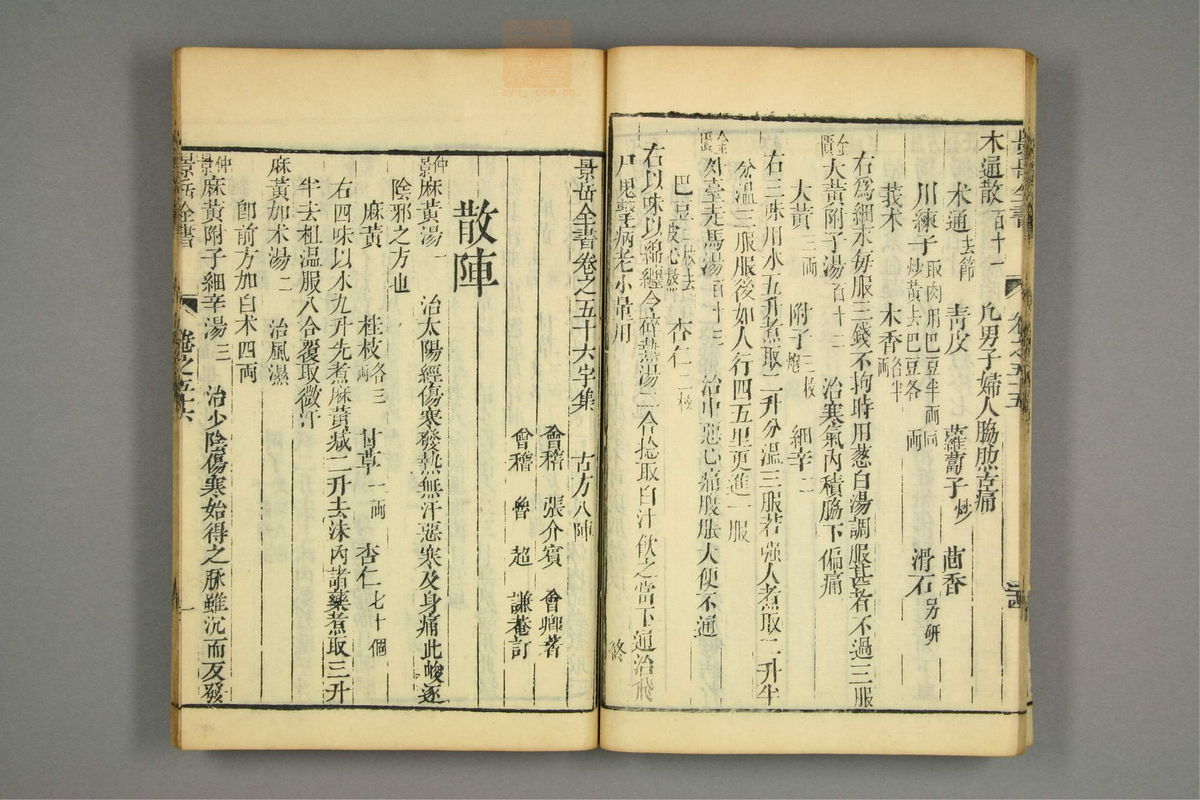 木通散百十一 凡男子婦人脇肋苦痛
木通去節 青皮 蘿蔔子炒 茴香
川練子取肉用巴豆半兩同炒黃去巴豆各一兩 滑石另研
莪朮 木香各半兩
右爲細末每服三錢不拘時用葱白湯調服甚者不過三服
金匱大黃附子湯百十二 治寒氣內積脇下偏痛
大黃三兩 附子三枚炮 細辛二
右三味用水五升煮取二升分溫三服若强人煮取二升半
分溫三服服後如人行四五里更進一服
金匱外臺走馬湯百十三 治中惡心痛腹脹大便不通
巴豆二枚去皮心熬 杏仁二枚
右以味以綿纏令碎熱湯二合捻取白汁飲之當下通治飛
尸鬼擊病老小量用
終
長岳全書
卷之五十五
景岳全書卷之五十六字集 古方八陣
會稽 張介賓 會卿著
會稽 魯 超 謙菴訂
散陣
仲景麻黃湯一 治太陽經傷寒發熱無汗惡寒及身痛此峻逐
陰邪之方也
麻黃 桂枝各三兩 甘草一兩 杏仁七十個
右四味以水九升先煮麻黃減二升去沫內諸藥煮取三升
半去柤溫服八合覆取微汗
麻黃加朮湯二 治風濕
卽前方加白朮四兩
仲景麻黃附子細辛湯三 治少陰傷寒始得之脉雖沉而反發
景岳全書
卷之五十六
一